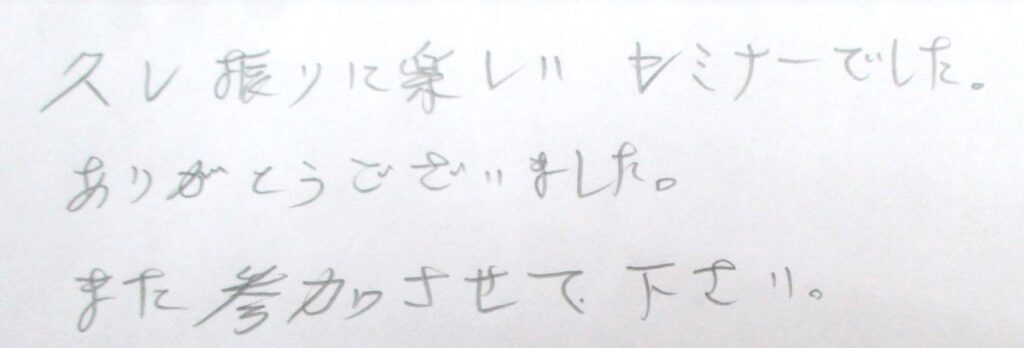 久し振りに楽しい セミナーでした。
ありがとうございました。
また参加させて下さい。